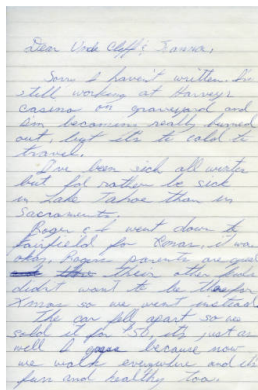 Dear Uncle Cliff & Joanna,
Sorry I haven't written. I'm
still working at Harveys
casino on graveyard and
I'm becoming really burned
out, but it's to cold to
travel.
I've been sick all winter
but I'd rather be sick
in Lake Tahoe than in
Sacramento.
Roger & I went down to
Fairfield for Xmas, it was
okay, Rogers parents are
their other
didn't want to be there for
Xmas so we went instead.
The car fell apart so we
sold it for $50, it's just as
well I guess because now
we walk everywhere and it's
fun and healthy too.